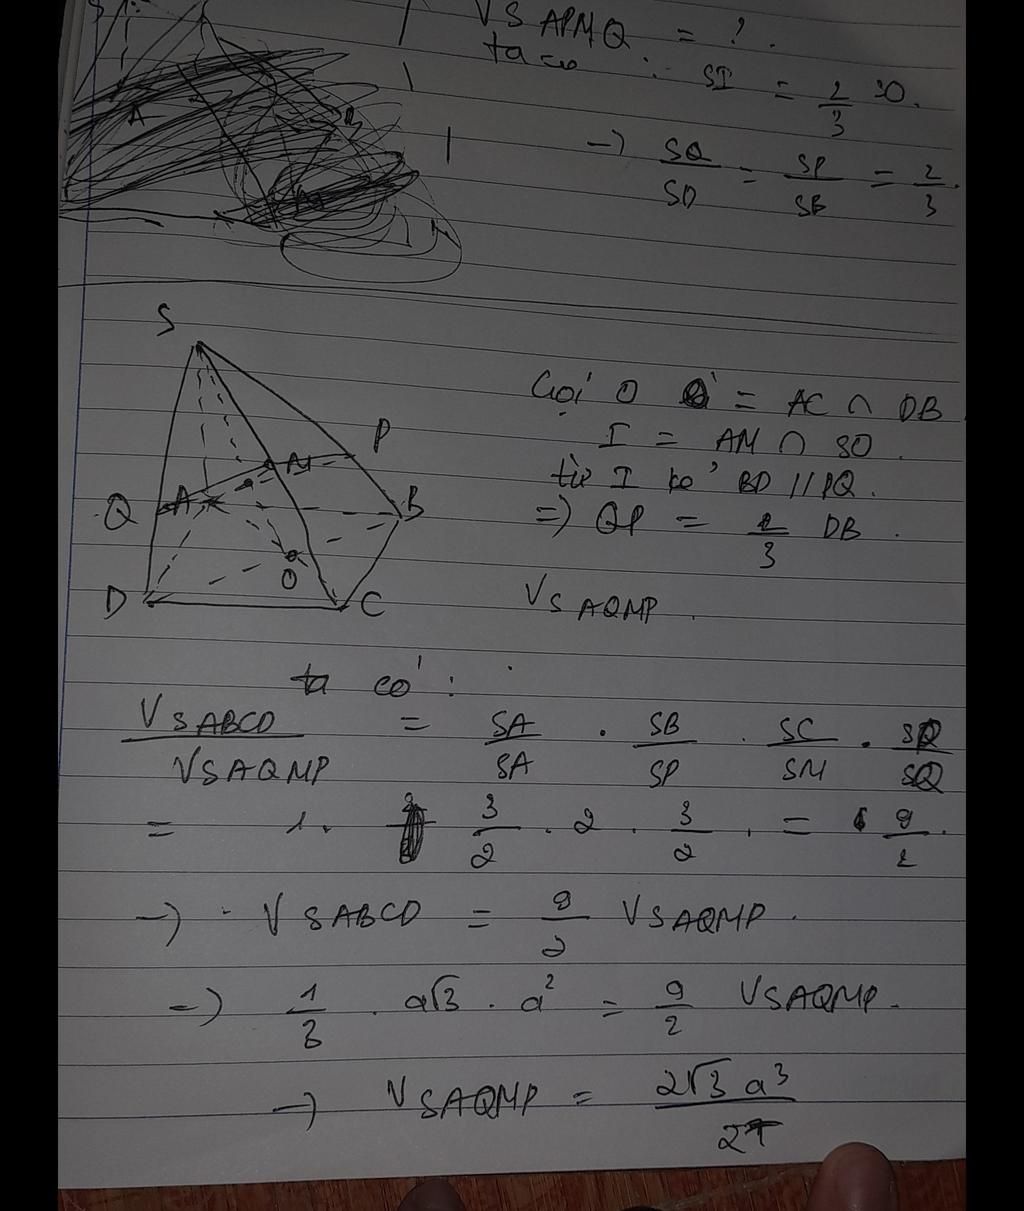 V S APMQ = ?.
ta có : SI = 2/3 SO.
→ SQ/SD = SP/SB = 2/3.
A
S
P
M
Q
A
B
O
D
C
Gọi O = AC ∩ DB
I = AM ∩ SO.
từ I kẻ BD // PQ.
=> QP = 2/3 DB.
V S AQMP.
ta có :
V SABCD / V SAQMP = SA/SA . SB/SP . SC/SM . SD/SQ
= 1. 3/2 . 2 . 3/2 . = 9/2.
→ V SABCD = 9/2 V SAQMP.
→ 1/3 . a√3 . a² = 9/2 V SAQMP.
→ V SAQMP = 2√3 a³ / 27